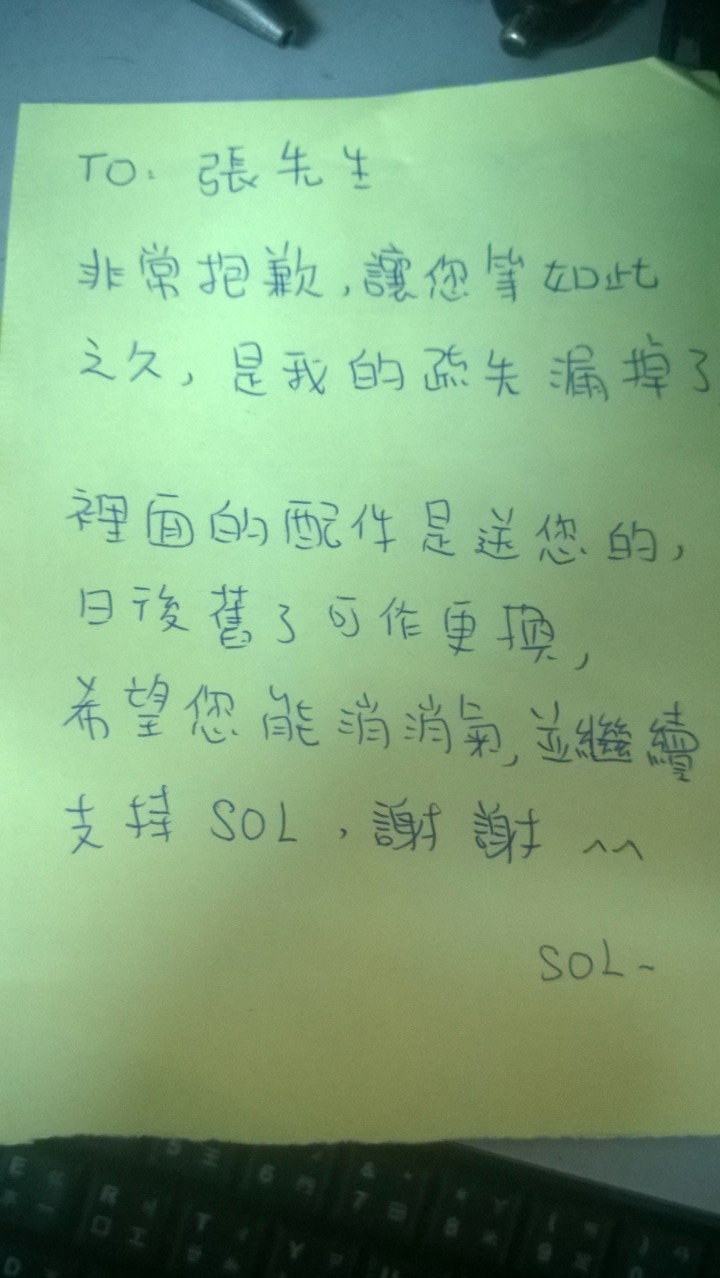 TO: 張先生
非常抱歉,讓您等如此
之久,是我的疏失漏掉了
裡面的配件是送您的,
日後舊了可作更換,
希望您能消消氣,並繼續
支持 SOL,謝謝 ^^
SOL~